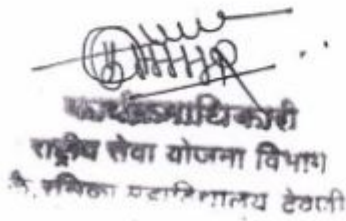 कार्यक्रमाधिकारी
राष्ट्रीय सेवा योजना विभाग
महाविद्यालय देवली